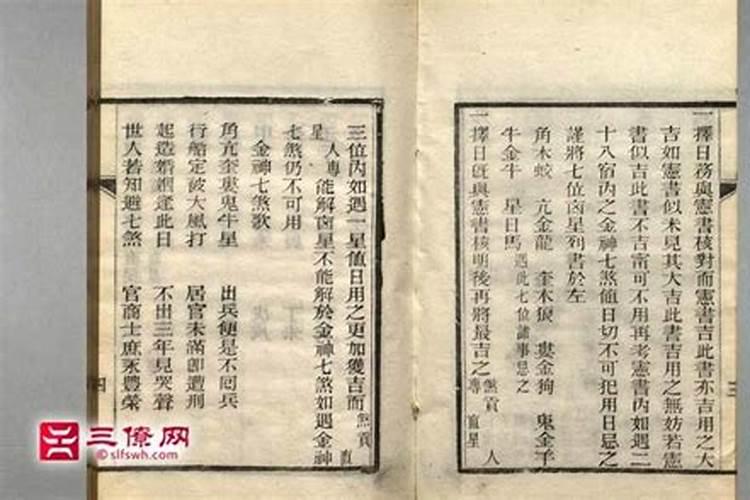 一擇日務與憲書核對而憲書吉此書亦吉用之大
吉如憲書似未見其大吉此書吉用之無妨若憲
書似吉此書不吉甯可不用再考憲書內如遇二
十八宿內之金神七煞値日切不可犯用日忌之
謹將七位凶星列書於左
角木蛟 亢金龍 奎木狼 婁金狗 鬼金羊
牛金牛 星日馬 遇此七位諸事忌之
一擇日旣與憲書核明後再將最吉之煞貢人專直星
三
三位內如遇一星値日用之更加獲吉而煞貢直
星人專能解凶星不能解於金神七煞如遇金神
七煞仍不可用
金神七煞歌
角亢奎婁鬼牛星 出兵便是不回兵
行船定被大風打 居官未滿卽遭刑
起造婚姻逢此日 不出三年見哭聲
世人若知避七煞 官商士庶永豐榮
四
三僚网
©slfswh.com